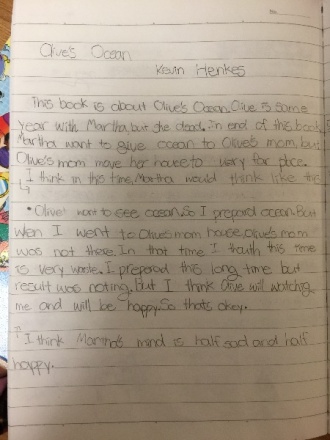 Olive's Ocean
Kevin Henkes
This book is about Olive's Ocean. Olive is same
year with Martha, but she dead. In end of this book,
Martha want to give ocean to Olive's mom, but
Olive's mom move her house to very far place.
I think in this time, Martha would think like this
"Olive want to see ocean. So I prepard ocean. But
wen I went to Olive's mom house, Olive's mom
was not there. In that time I thauth this time
is very worste. I prepared this long time but
result was noting. But I think Olive will watching
me and will be happy. So thats okey.
"I think Martha's mind is half sad and half
happy.